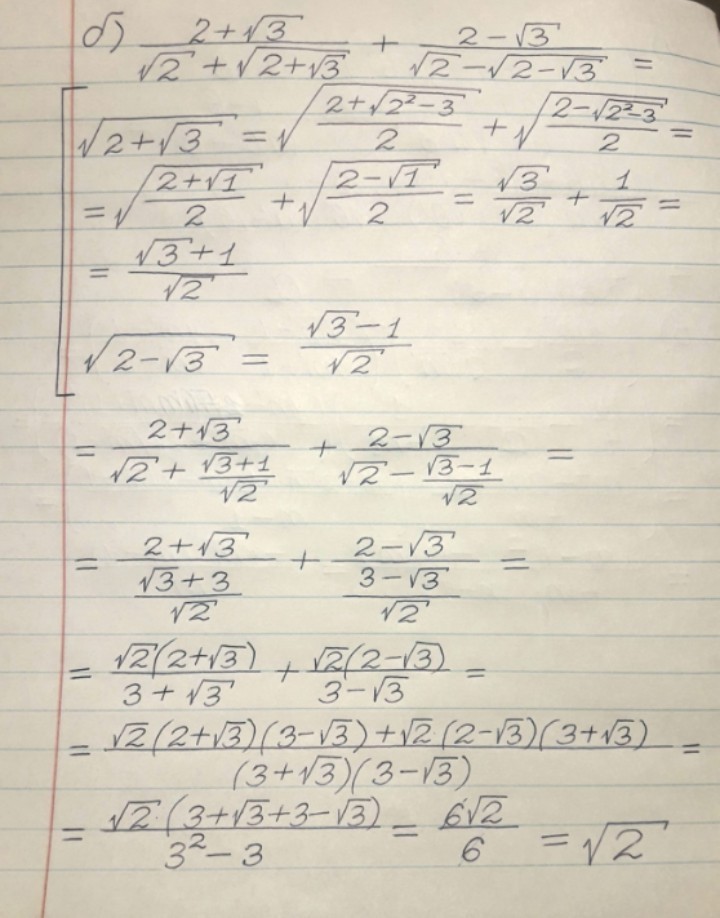 б) (2+√3)/(√2+√(2+√3)) + (2-√3)/(√2-√(2-√3)) =
√(2+√3) = √((2+√(2²-3))/2) + √((2-√(2²-3))/2) =
= √((2+√1)/2) + √((2-√1)/2) = √3/√2 + 1/√2 =
= (√3+1)/√2
√(2-√3) = (√3-1)/√2
= (2+√3)/(√2+(√3+1)/√2) + (2-√3)/(√2-(√3-1)/√2) =
= (2+√3)/((√3+3)/√2) + (2-√3)/((3-√3)/√2) =
= √2(2+√3)/(3+√3) + √2(2-√3)/(3-√3) =
= (√2(2+√3)(3-√3)+√2·(2-√3)(3+√3))/((3+√3)(3-√3)) =
= √2·(3+√3+3-√3)/(3²-3) = 6√2/6 = √2